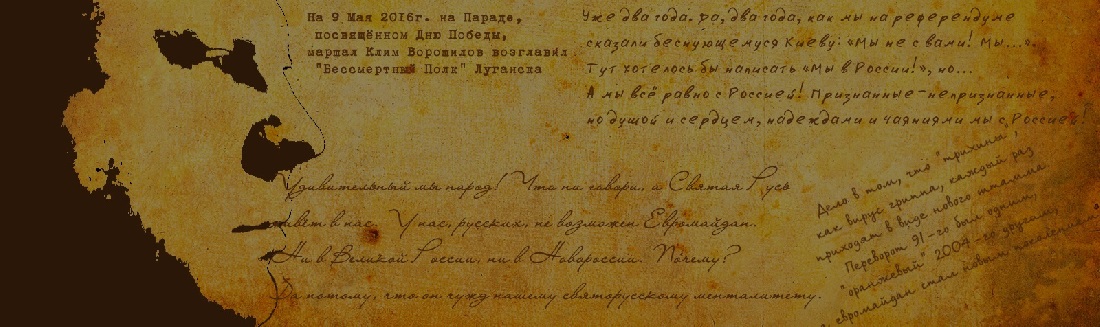 На 9 Мая 2016г. на Параде,
посвящённом Дню Победы,
маршал Клим Ворошилов возглавил
"Бессмертный Полк" Луганска
Уже два года. Да, два года, как мы на референдуме
сказали беснующемуся Киеву: «Мы не с вами! Мы...».
Тут хотелось бы написать «Мы в России!», но...
А мы всё равно с Россией! Признанные-непризнанные,
но душой и сердцем, надеждами и чаяниями мы с Россией!
Удивительный мы народ! Что ни говори, а Святая Русь
живет в нас. У нас, русских, не возможен Евромайдан.
Ни в Великой России, ни в Новороссии. Почему?
Да потому, что он чужд нашему святорусскому менталитету.
Дело в том, что "трихины",
как вирус гриппа, каждый раз
приходят в виде нового штамма.
Переворот 91-го был одним,
"оранжевый" 2004-го другим,
а евромайдан стал новым поколением